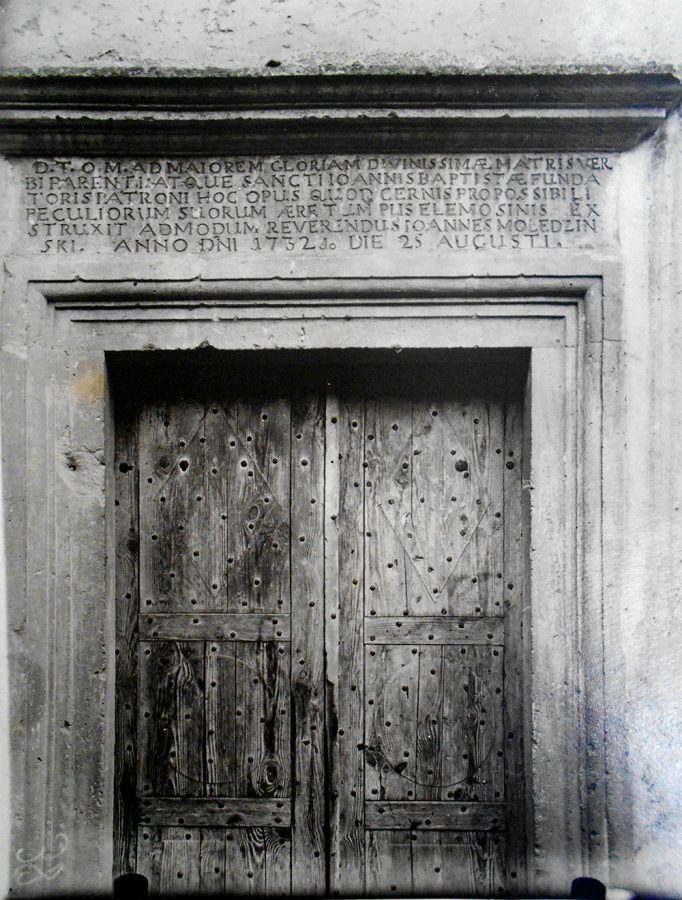 D. T. O. M. AD MAIOREM GLORIAM DIVINISSIMÆ MATRIS VER
BI PARENTI ATQUE SANCTI IOANNIS BAPTISTÆ FUNDA
TORIS PATRONI HOC OPUS QUOD CERNIS PRO POSSIBILI
PECULIORUM SUORUM ÆRE TUM PIIS ELEMOSINIS EX
STRUXIT ADMODUM REVERENDUS IOANNES MOLEDZIN
SKI. ANNO DNI 1732do DIE 25 AUGUSTI.